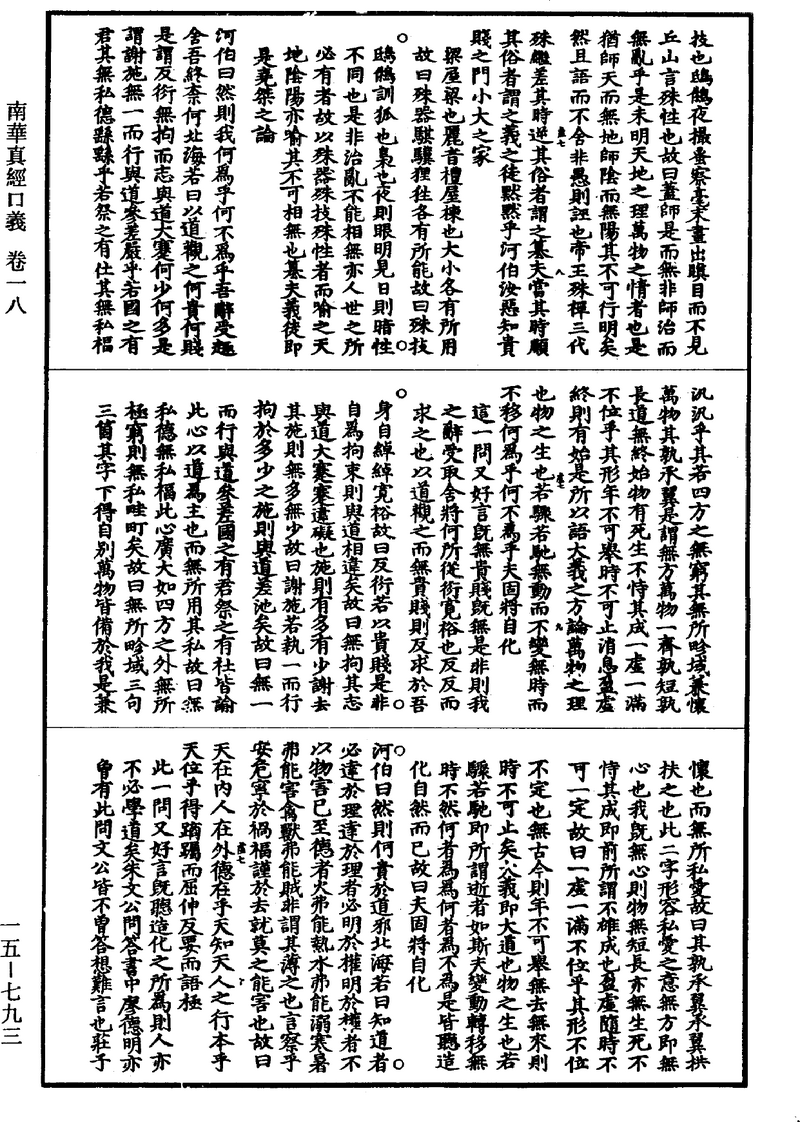 南華真經口義　卷一八
一五—七九三
技也鴟鵂夜撮蚤察毫末晝出瞋目而不見
丘山言殊性也故曰蓋師是而無非師治而
無亂乎是未明天地之理萬物之情者也是
猶師天而無地師陰而無陽其不可行明矣
然且語而不舍非愚則誣也帝王殊禪三代
殊繼差其時逆其俗者謂之篡夫當其時順
其俗者謂之義之徒默默乎河伯汝惡知貴
賤之門小大之家
梁屋梁也麗音欐屋棟也大小各有所用
故曰殊器騏驥狸狌各有所能故曰殊技
鴟鵂訓狐也梟也夜則眼明見日則暗性
不同也是非治亂不能相無亦人世之所
必有者故以殊器殊技殊性者而喻之天
地陰陽亦喻其不可相無也篡夫義徒即
是堯桀之論
河伯曰然則我何為乎何不為乎吾辭受趣
舍吾終奈何北海若曰以道觀之何貴何賤
是謂反衍無拘而志與道大蹇何少何多是
謂謝施無一而行與道參差嚴乎若國之有
君其無私德繇繇乎若祭之有社其無私福
汎汎乎其若四方之無窮其無所畛域兼懷
萬物其孰承翼是謂無方萬物一齊孰短孰
長道無終始物有死生不恃其成一虛一滿
不位乎其形年不可舉時不可止消息盈虛
終則有始是所以語大義之方論萬物之理
也物之生也若驟若馳無動而不變無時而
不移何為乎何不為乎夫固將自化
這一問又好言既無貴賤既無是非則我
之辭受取舍將何所從衍寬裕也反反而
求之也以道觀之而無貴賤則反求於吾
身自綽綽寬裕故曰反衍若以貴賤是非
自為拘束則與道相違矣故曰無拘其志
與道大蹇蹇違礙也施則有多有少謝去
其施則無多無少故曰謝施若執一而行
拘於多少之施則與道差池矣故曰無一
而行與道參差國之有君祭之有社皆喻
此心以道為主也而無所用其私故曰無
私德無私福此心廣大如四方之外無所
極窮則無私畦町矣故曰無所畛域三句
三箇其字下得自別萬物皆備於我是兼
懷也而無所私愛故曰其孰承翼承翼拱
扶之也此二字形容私愛之意無方即無
心也我既無心則物無短長亦無生死不
恃其成即前所謂不雄成也盈虛隨時不
可一定故曰一虛一滿不位乎其形不位
不定也無古今則年不可舉無去無來則
時不可止矣大義即大道也物之生也若
驟若馳即所謂逝者如斯夫變動轉移無
時不然何者為為何者為不為是皆聽造
化自然而已故曰夫固將自化
河伯曰然則何貴於道邪北海若曰知道者
必達於理達於理者必明於權明於權者不
以物害己至德者火弗能熱水弗能溺寒暑
弗能害禽獸弗能賊非謂其薄之也言察乎
安危寧於禍福謹於去就莫之能害也故曰
天在內人在外德在乎天知天人之行本乎
天位乎得蹢䠱而屈伸反要而語極
此一問又好言既聽造化之所為則人亦
不必學道矣朱文公問答書中廖德明亦
曾有此問文公皆不曾答想難言也莊子